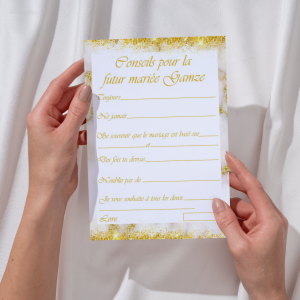 Conseils pour la
futur mariée Gamze
Toujours
Ne jamais
Se souvenir que le mariage est basé sur
et
Des fois tu devras
N'oublies pas de
Je vous souhaite à tous les deux
Love